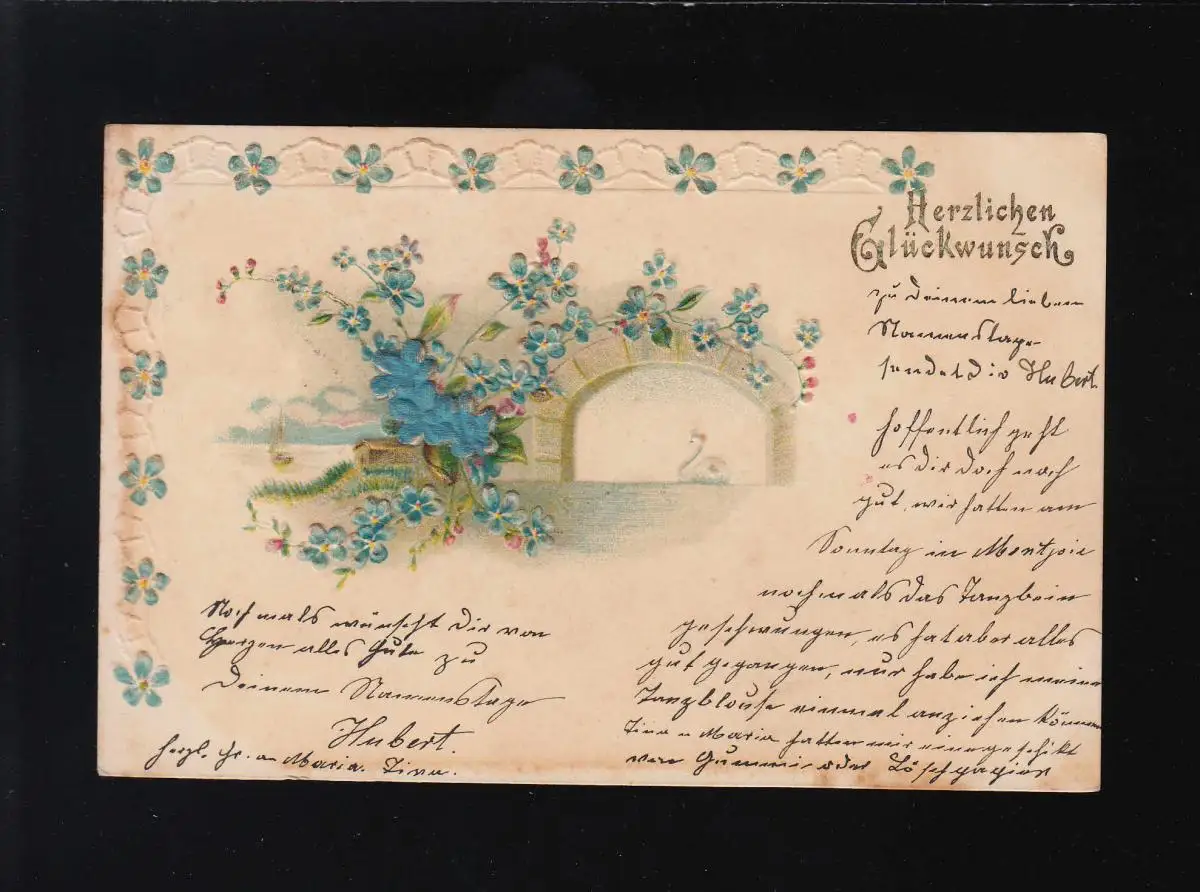 Herzlichen
Glückwunsch
zu Deinem lieben
Namenstage
sendet Dir Hubert.
Hoffentlich geht
es Dir doch noch
gut, wir hatten am
Sonntag in Montjoie
nochmals das Tanzbein
geschwungen, es hat aber alles
gut gegangen, nur habe ich meine
Tanzblouse einmal anziehen können
Tina u Maria hatten mir eine geschikt
von Gummi oder Löschpapier
Nochmals wünscht Dir von
Herzen alles Gute zu
Deinem Namenstage
Hubert.
herzl. Gr. a Maria. Tina.